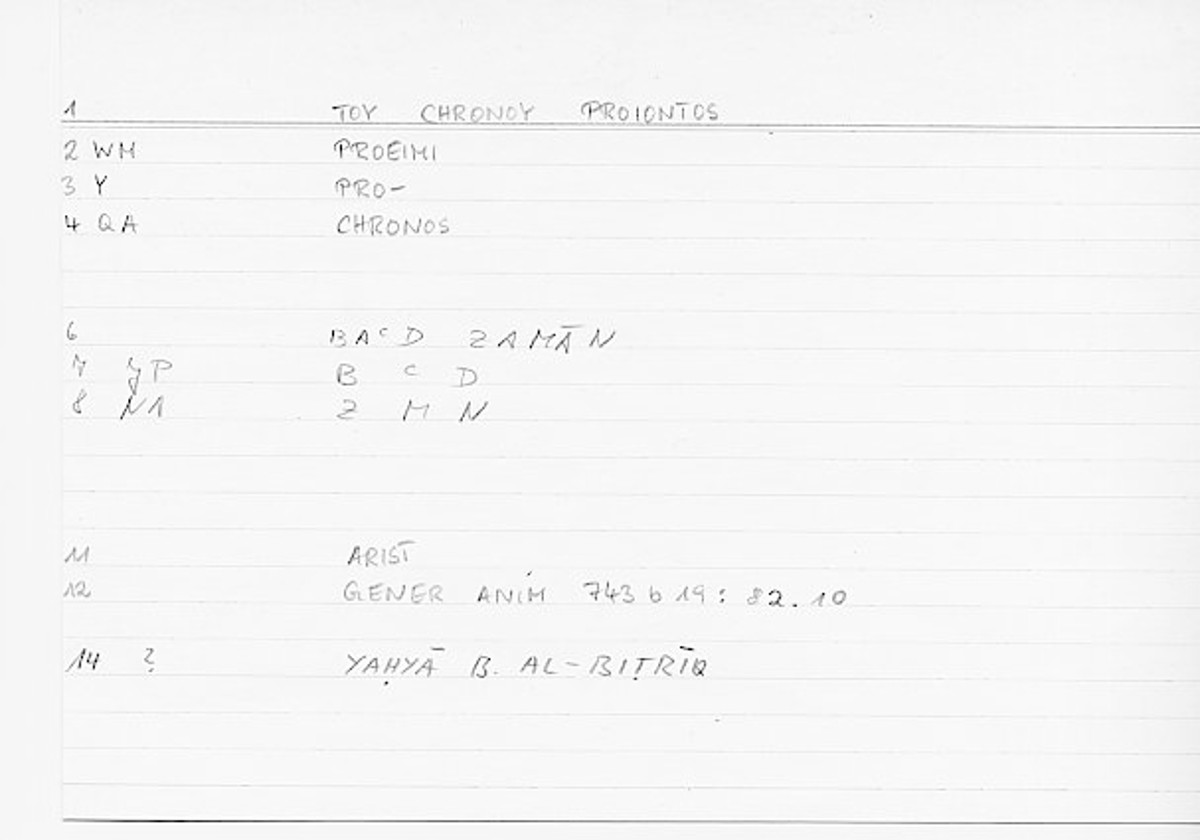 1 TOY CHRONOY PROIONTOS
2 WM PROEIMI
3 Y PRO-
4 QA CHRONOS
6 BAᶜD ZAMĀN
7 JP B ᶜ D
8 N1 Z M N
11 ARIST
12 GENER ANIM 743 b 19 : 82.10
14 ? YAḤYĀ B. AL-BIṬRĪQ